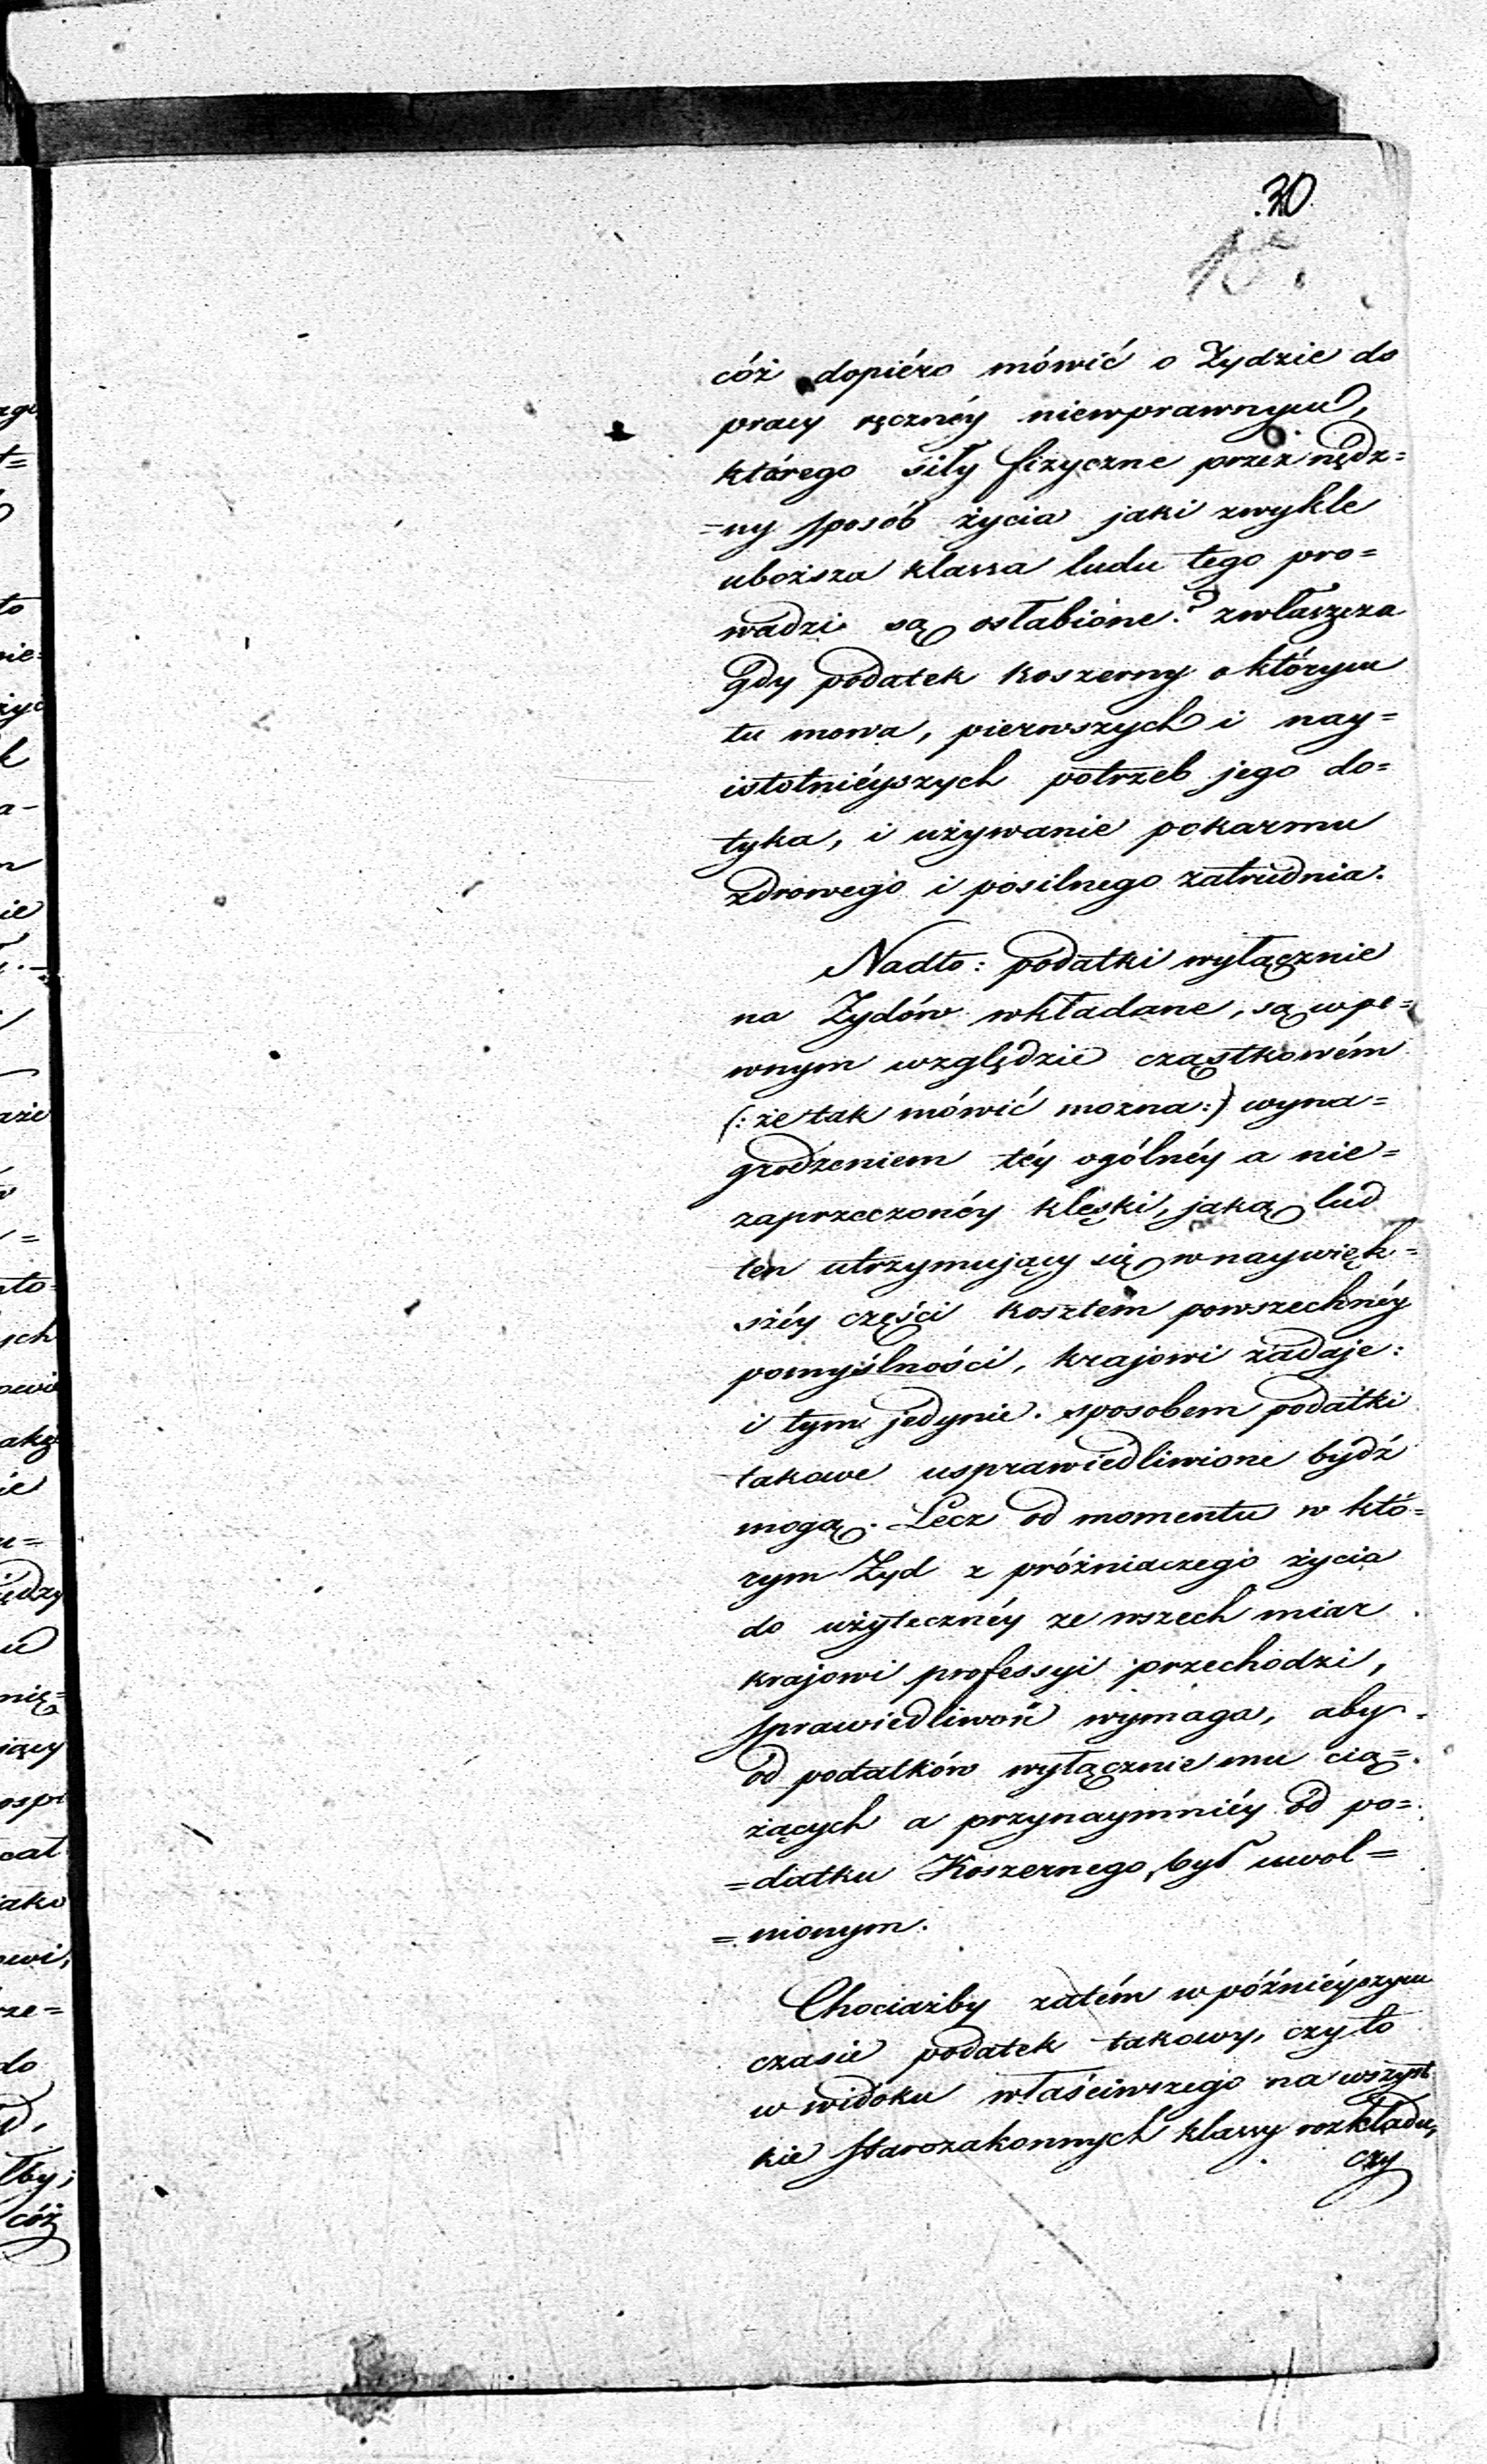 30
15.
cóż dopiéro mówić o Żydzie do
pracy ręcznéy niewprawnym,
którego siły fizyczne przez nędz=
=ny sposób życia jaki zwykle
uboższa klassa ludu tego pro=
wadzi są osłabione? zwłaszcza
gdy podatek koszerny o którym
tu mowa, pierwszych i nay=
istotniéyszych potrzeb jego do=
tyka, i używanie pokarmu
zdrowego i posilnego zatrudnia.
Nadto: podatki wyłącznie
na Żydów wkładane, są w pe=
wnym względzie cząstkowém
(: że tak mówić można :) wyna=
grodzeniem téy ogólnéy a nie=
zaprzeczonéy klęski, jaką lud
ten utrzymujący się w naywięk=
széy części kosztem powszechnéy
pomyślności, krajowi zadaje:
i tym jedynie sposobem podatki
takowe usprawiedliwione bydź
mogą. Lecz od momentu w któ=
rym Żyd z próżniaczego życia
do użytecznéy ze wszech miar
krajowi professyi przechodzi,
sprawiedliwość wymaga, aby
od podatków wyłącznie mu cią=
żących a przynaymniéy od po=
=datku Koszernego, był uwol=
=nionym.
Chociażby zatém w późniéyszym
czasie podatek takowy, czy to
w widoku właściwszego na wszyst
kie Starozakonnych klassy rozkładu,
czy